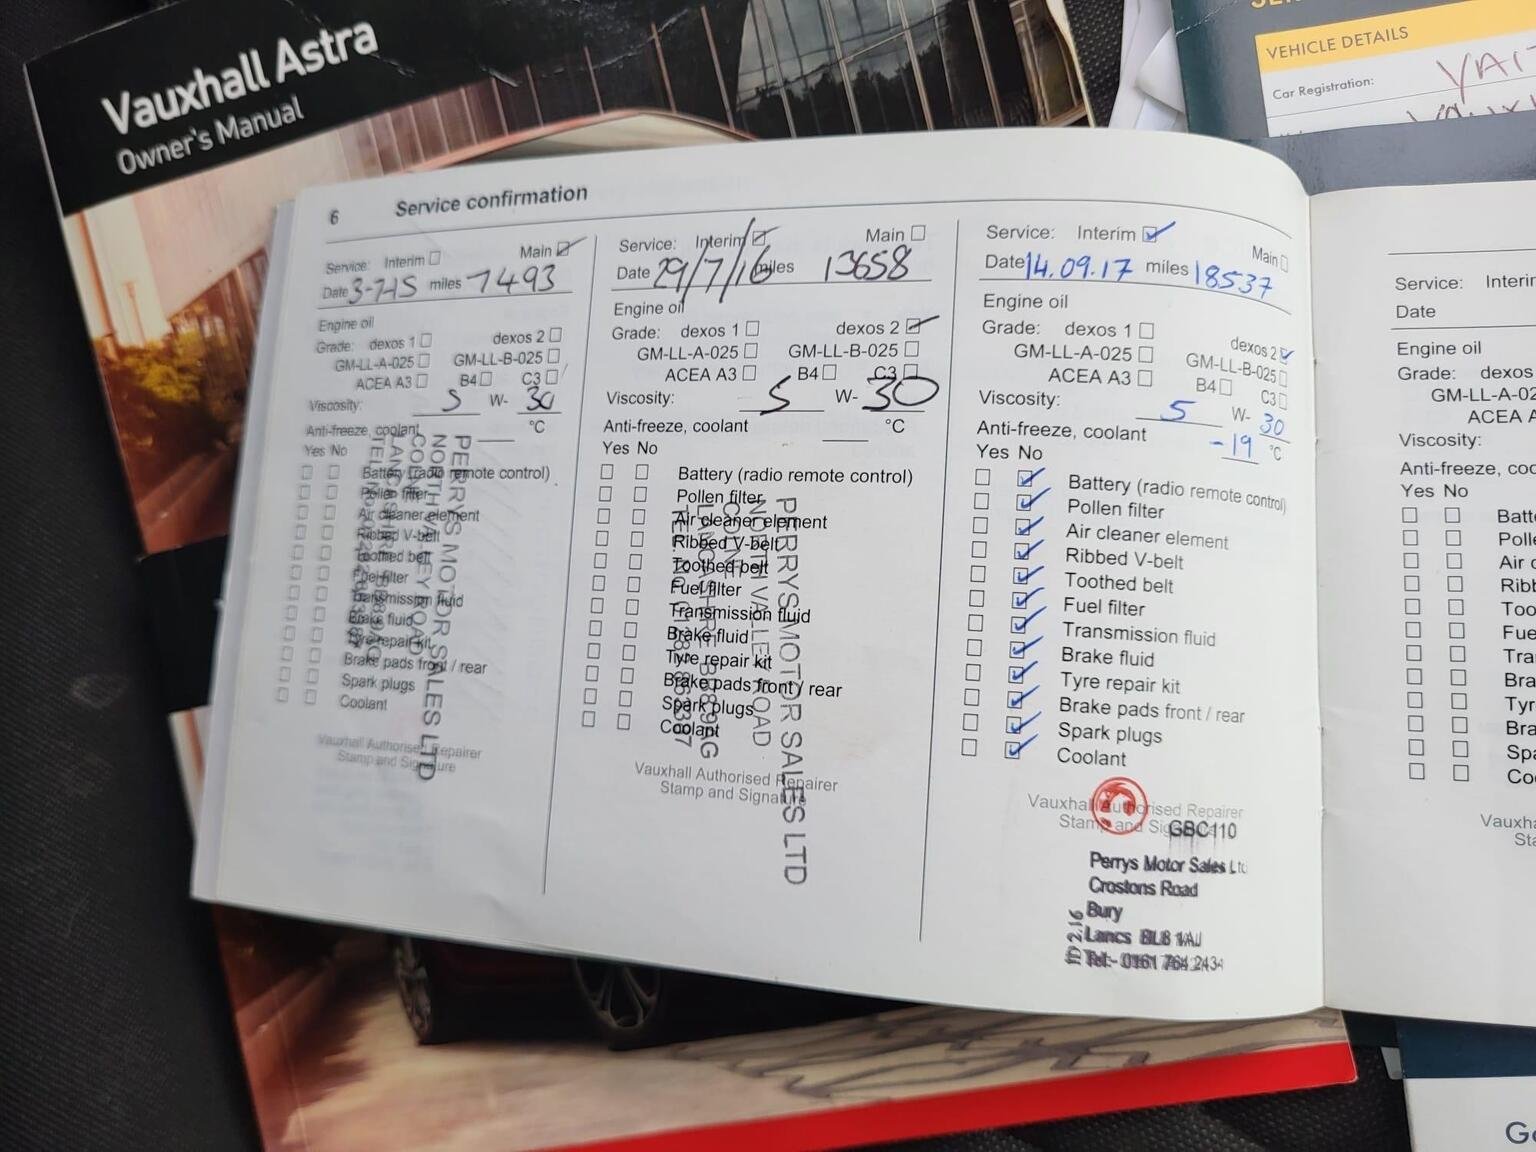 Vauxhall Astra
Owner's Manual
VEHICLE DETAILS
Car Registration:
6 Service confirmation
Service: Interim Main
Date 3-7-15 miles 7493
Engine oil
Grade: dexos 1 dexos 2
GM-LL-A-025 GM-LL-B-025
ACEA A3 B4 C3
Viscosity: 5 W- 30
Anti-freeze, coolant °C
Yes No
Battery (radio remote control)
Pollen filter
Air cleaner element
Ribbed V-belt
Toothed belt
Fuel filter
Transmission fluid
Brake fluid
Tyre repair kit
Brake pads front / rear
Spark plugs
Coolant
Vauxhall Authorised Repairer
Stamp and Signature
PERRYS MOTOR SALES LTD
NORTH VALLEY ROAD
COLNE
LANCASHIRE
Service: Interim Main
Date 29/7/16 miles 13658
Engine oil
Grade: dexos 1 dexos 2
GM-LL-A-025 GM-LL-B-025
ACEA A3 B4 C3
Viscosity: 5 W- 30
Anti-freeze, coolant °C
Yes No
Battery (radio remote control)
Pollen filter
Air cleaner element
Ribbed V-belt
Toothed belt
Fuel filter
Transmission fluid
Brake fluid
Tyre repair kit
Brake pads front / rear
Spark plugs
Coolant
Vauxhall Authorised Repairer
Stamp and Signature
PERRYS MOTOR SALES LTD
NORTH VALLEY ROAD
COLNE
LANCASHIRE BB8 9AG
Service: Interim Main
Date 14.09.17 miles 18537
Engine oil
Grade: dexos 1 dexos 2
GM-LL-A-025 GM-LL-B-025
ACEA A3 B4 C3
Viscosity: 5 W- 30
Anti-freeze, coolant -19 °C
Yes No
Battery (radio remote control)
Pollen filter
Air cleaner element
Ribbed V-belt
Toothed belt
Fuel filter
Transmission fluid
Brake fluid
Tyre repair kit
Brake pads front / rear
Spark plugs
Coolant
Vauxhall Authorised Repairer
Stamp and
GBC110
Perrys Motor Sales Ltd
Crostons Road
Bury
Lancs BL8 1AJ
Tel:- 0161 764 2434
Service: Interim
Date
Engine oil
Grade: dexos
GM-LL-A-02
ACEA A
Viscosity:
Anti-freeze, coo
Yes No
Batte
Polle
Air c
Ribb
Too
Fue
Tra
Bra
Tyr
Bra
Spa
Co
Vauxha
Sta